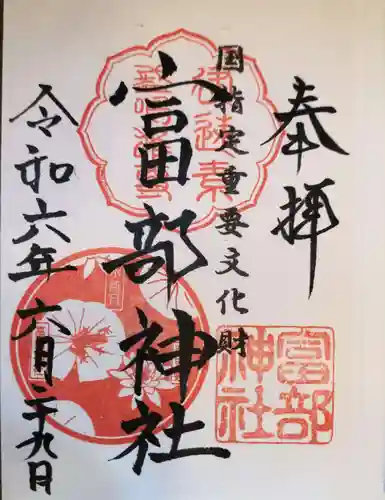 奉拝
国指定重要文化財
富部神社
令和六年六月二十九日
富部
神社